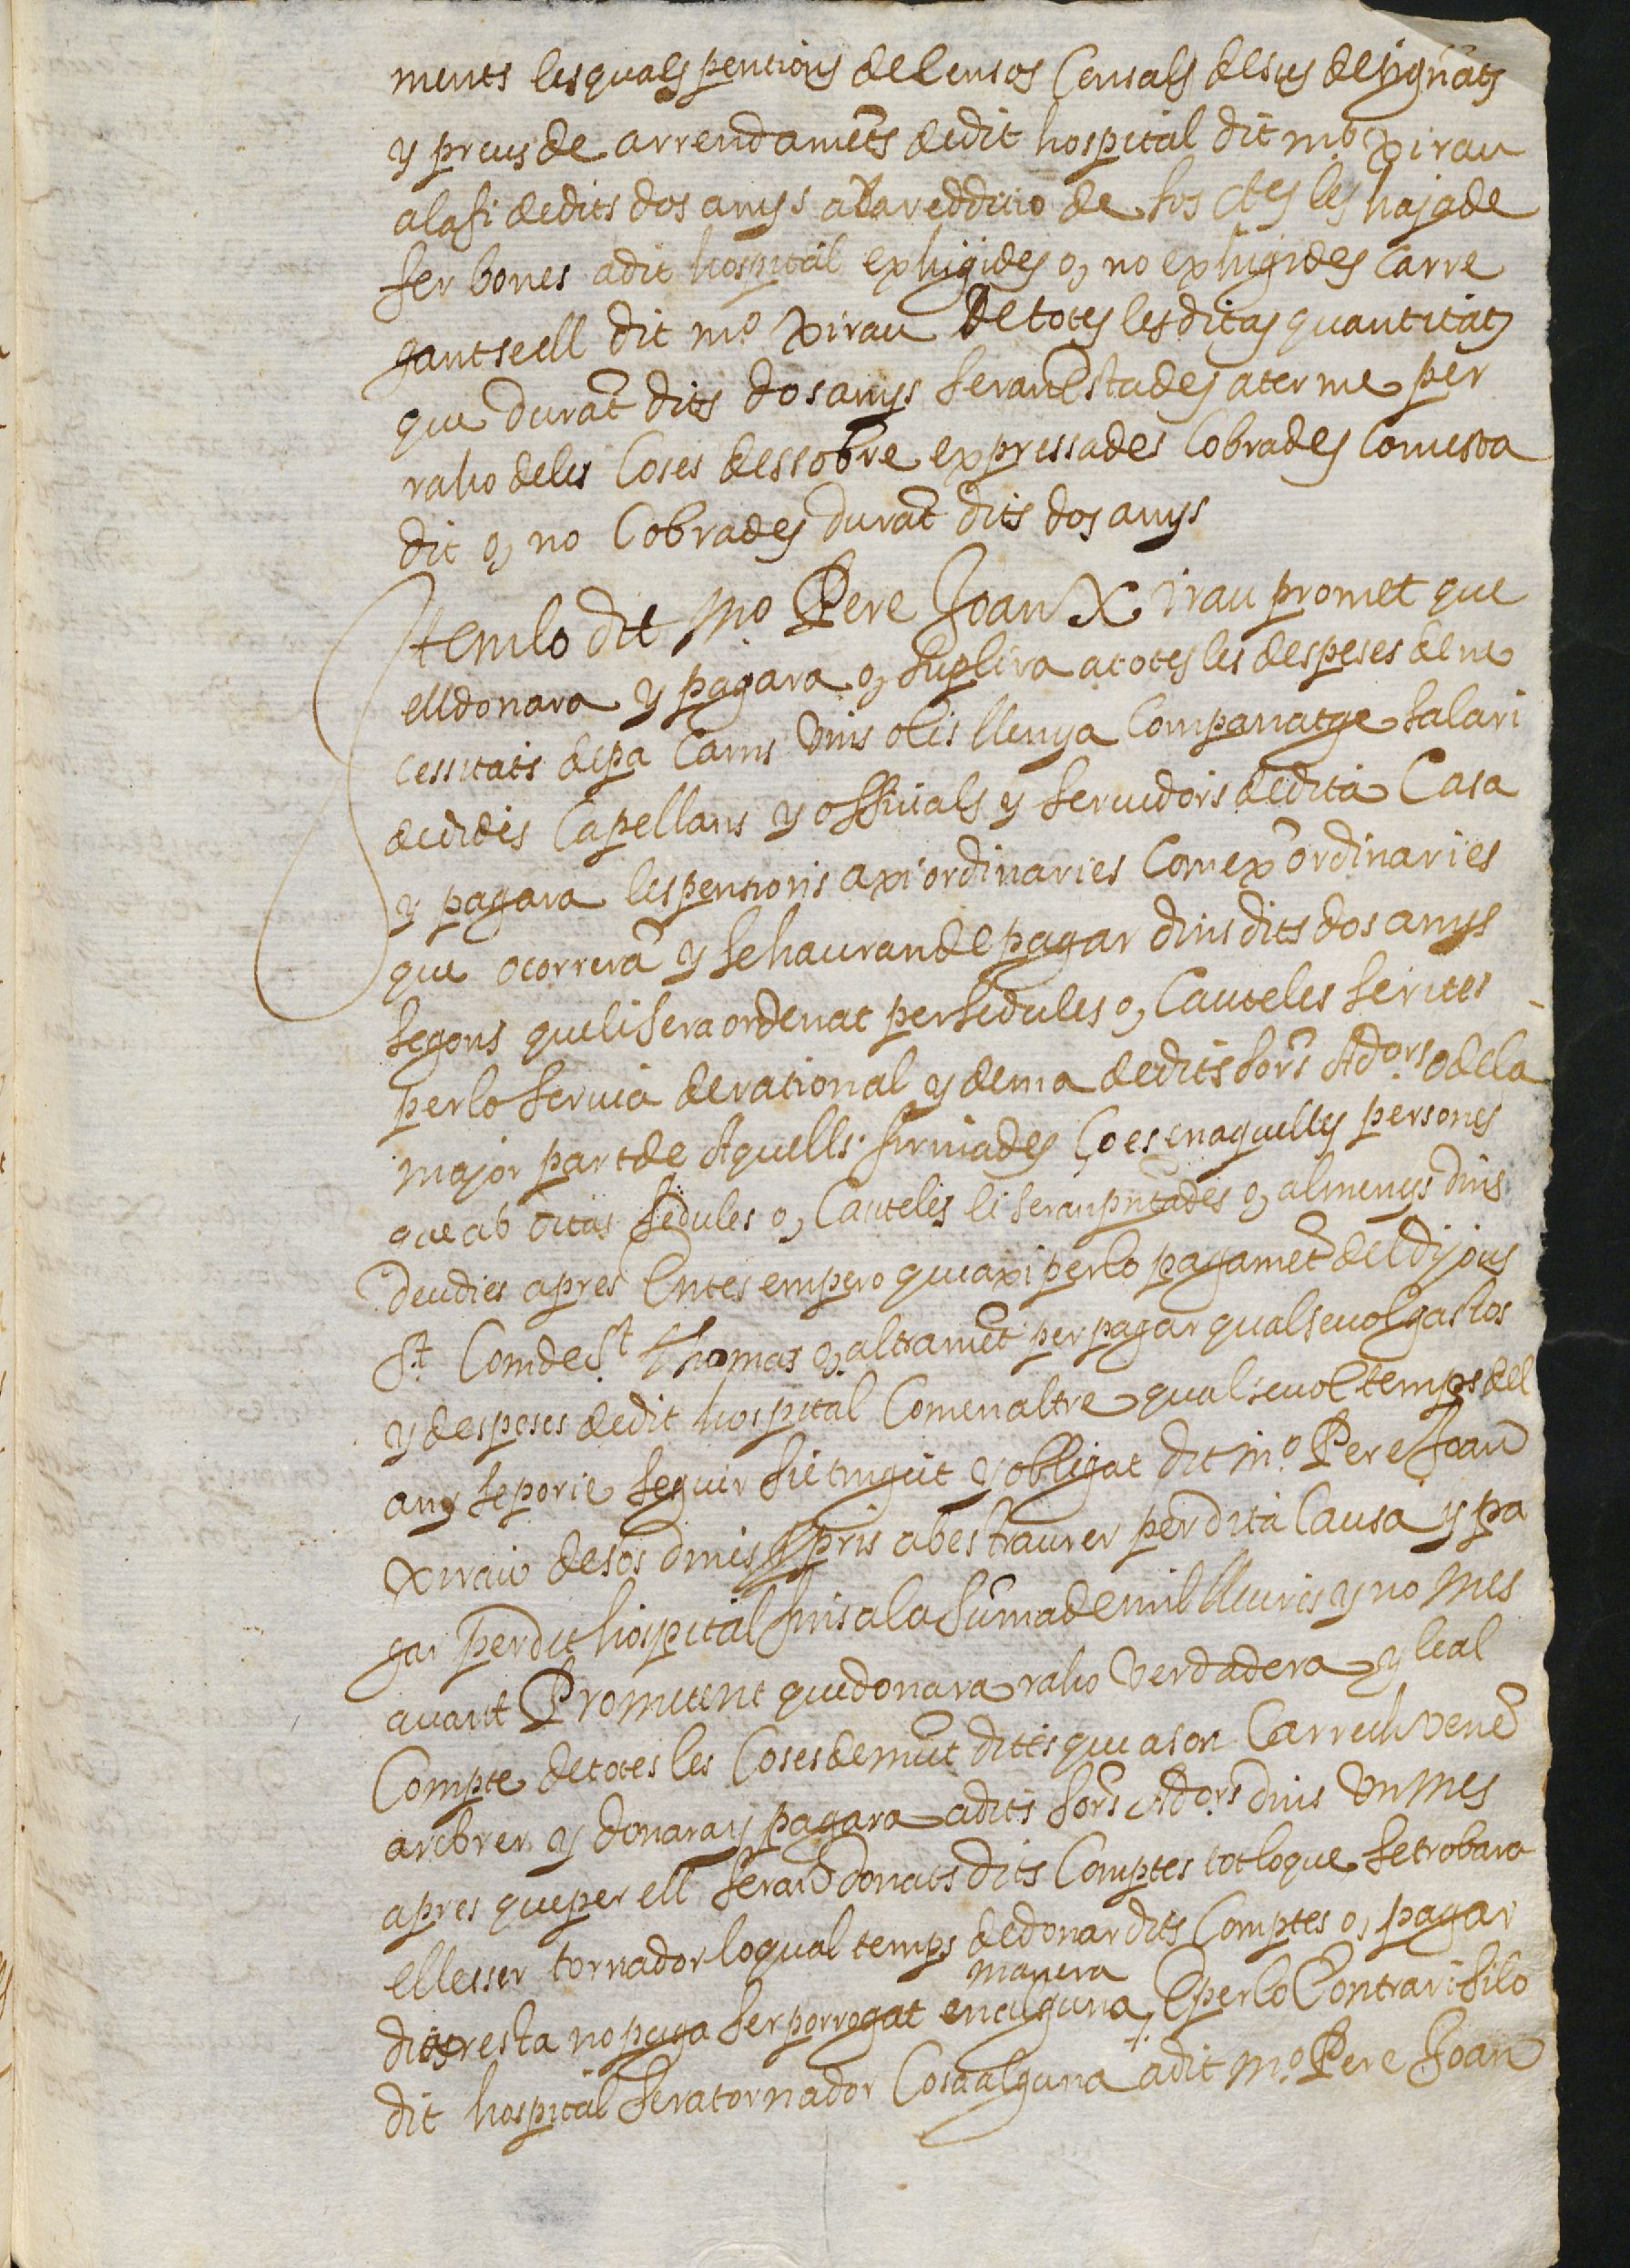 ments les quals pencions de Censos Censals desus designats
y preus de arrendamēts de dit hospital dit mº Xirau
a la fi de dits dos anys a la reddicio de sos ctes les haja de
fer bones a dit hospital exhigides o, no exhigides Carre
gantse ell dit mº Xirau de totes les ditas quantitats
que durāt dits dos anys seran Estades a terme per
raho de les Coses dessobre expressades Cobrades Com esta
dit o, no Cobrades durāt dits dos anys
Item lo dit Mº Pere Joan Xirau promet que
ell donara y pagara o, suplira a totes les despeses de ne
cessitats de pa Carns vins olis llenya Companatge salari
de dides Capellans y officials y servidors de dita Casa
y pagara les pencions axi ordinaries Com exᵒordinaries
que ocorrerā y se hauran de pagar dins dits dos anys
segons que li sera ordenat per sedules o, Cauteles scrites
per lo scriva de rational y de ma de dits sors Adors o de la
major part de Aquells firmades ço es en aquelles persones
que ab ditas sedules o, Cauteles li seran pntades o, almenys dins
deu dies apres Entes empero que axi per lo pagamēt del dijous
St Com de St Thomas o, altramēt per pagar qualsevol gastos
y despeses de dit hospital Com en altre qualsevol temps del
any se porie seguir sie tingut y obligat dit mº Pere Joan
Xirau de sos dines propris a bestraurer per dita Causa y pa
gar per dit hospital fins a la suma de mil lliures y no mes
avant Prometent que donara raho verdadera y leal
Compte de totes les Coses demūt dites que a son Carrech vene
a rebrer y donara y pagara a dits sors Adors dins un mes
apres que per ell seran donats dits Comptes tot lo que se trobara
ell esser tornador lo qual temps de donar dits Comptes o, pagar
dita resta no puga ser porrogat en alguna manera E per lo Contrari si lo
dit hospital sera tornador Cosa alguna a dit mº Pere Joan